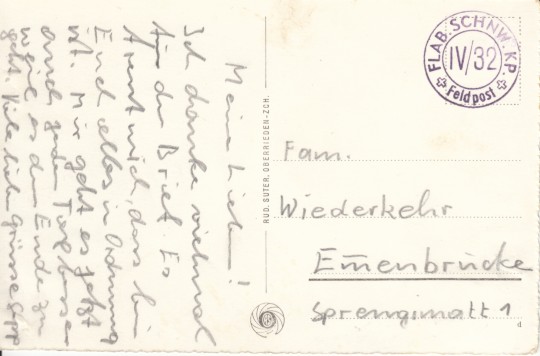 Meine Lieben!
Ich danke vielmal
für den Brief. Es
freut mich, dass bei
Euch alles in Ordnung
ist. Mir geht es jetzt
auch jeden Tag besser
weil es dem Ende zu
geht. Viele liebe Grüsse Sepp
RUD. SUTER, OBERRIEDEN-ZCH.
FLAB. SCHNW. KP.
IV/32
Feldpost
Fam.
Wiederkehr
Em̄enbrücke
Sprengimatt 1
d